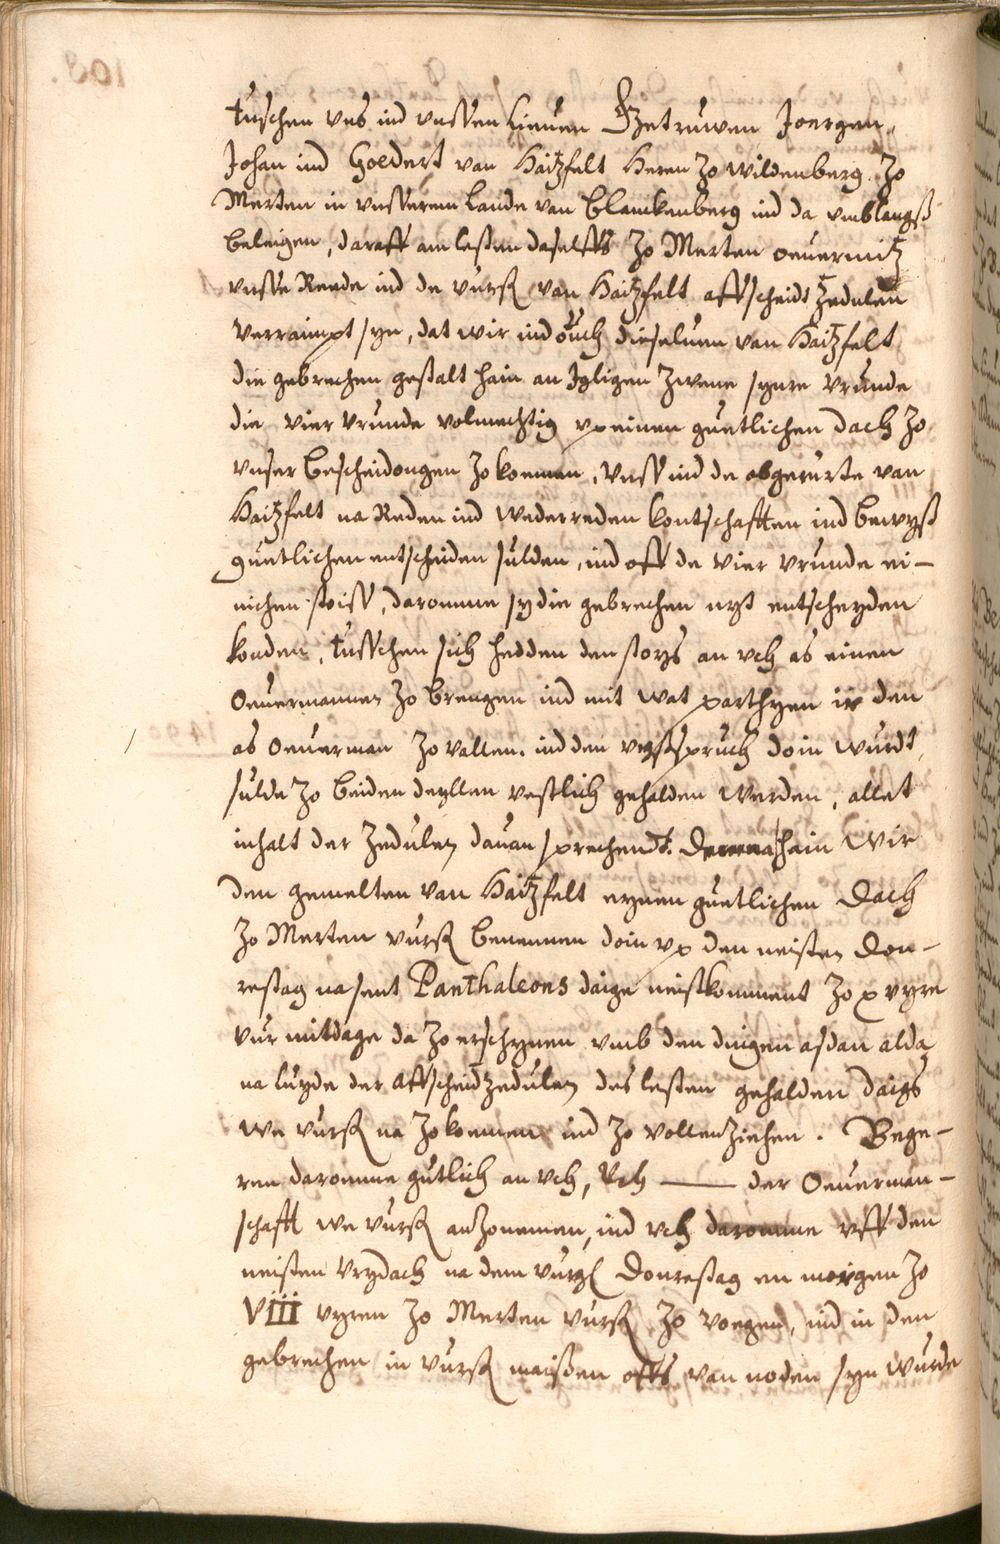 tuschen vns ind vnssen Lieuen Getruwen Joergen,
Johan ind Goedert van Haitzfelt Heren zo Wildenberg. Zo
Merten in vnsserem Lande van Blanckenberg ind da vmblangß
beleigen, daraff am lesten daselffs zo Merten ouermitz
vnsse Reede ind de vurß van Haitzfelt affscheidt zedulen
verraimpt syn, dat wir ind ouch dieseluen van Haitzfelt
die gebrechen gestalt hain an Igligen zwene synre vrunde
die vier vrunde volmechtig vp einen guetlichen Dach zo
vnser bescheidongen zo koemen, vnss ind de obgerurte van
Haitzfelt na Reden ind wederreden kontschafften ind bewyß
guetlichen entscheiden sulden, ind off de vier vrunde ei-
nichen daromme sy die gebrechen nyt entscheyden
konden, tusschen sich hedden den stoys an vch as einen
Ouermannen zo brengen ind mit wat parthyen ir den
as Ouerman zo vallen. ind den vyßspruch doin wurdt,
sulde zo beiden deyllen vestlich gehalden werden, allet
inhalt der zedulen dauan sprechendt. Demna hain wir
den gemelten van Haitzfelt eynen guetlichen Dach
zo Merten vurß benennen doin vp den neisten Don-
restag na sent Panthaleons daige neistkomment zo x vyre
vur mitdage da zo erschynen vmb den dingen asdan alda
na luyde der affscheidtzedulen des lesten gehalden daigs
we vurß na zo koemen ind zo vollenziehen. Bege-
ren daromme gutlich an vch, Vch —— der Ouerman-
schafft we vurß anzonemen, ind vch daromme vff den
neisten vrydach na dem vurß Donrestag en morgen zo
VIII vyren zo Merten vurß zo voegen, ind in den
gebrechen in vurß maissen offs van noden syn wurde